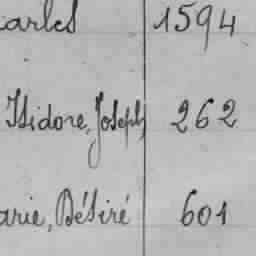 arles 1594
Isidore, Joseph 262
arie, Bésiré 601